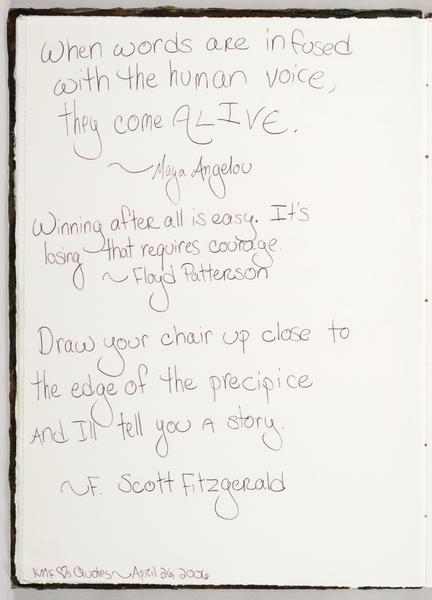 When words are infused
with the human voice,
they come ALIVE.
~Maya Angelou
Winning after all is easy. It's
losing that requires courage.
~ Floyd Patterson
Draw your chair up close to
the edge of the precipice
And I'll tell you A story.
~F. Scott Fitzgerald
KMF ♡s Quotes~April 26, 2006